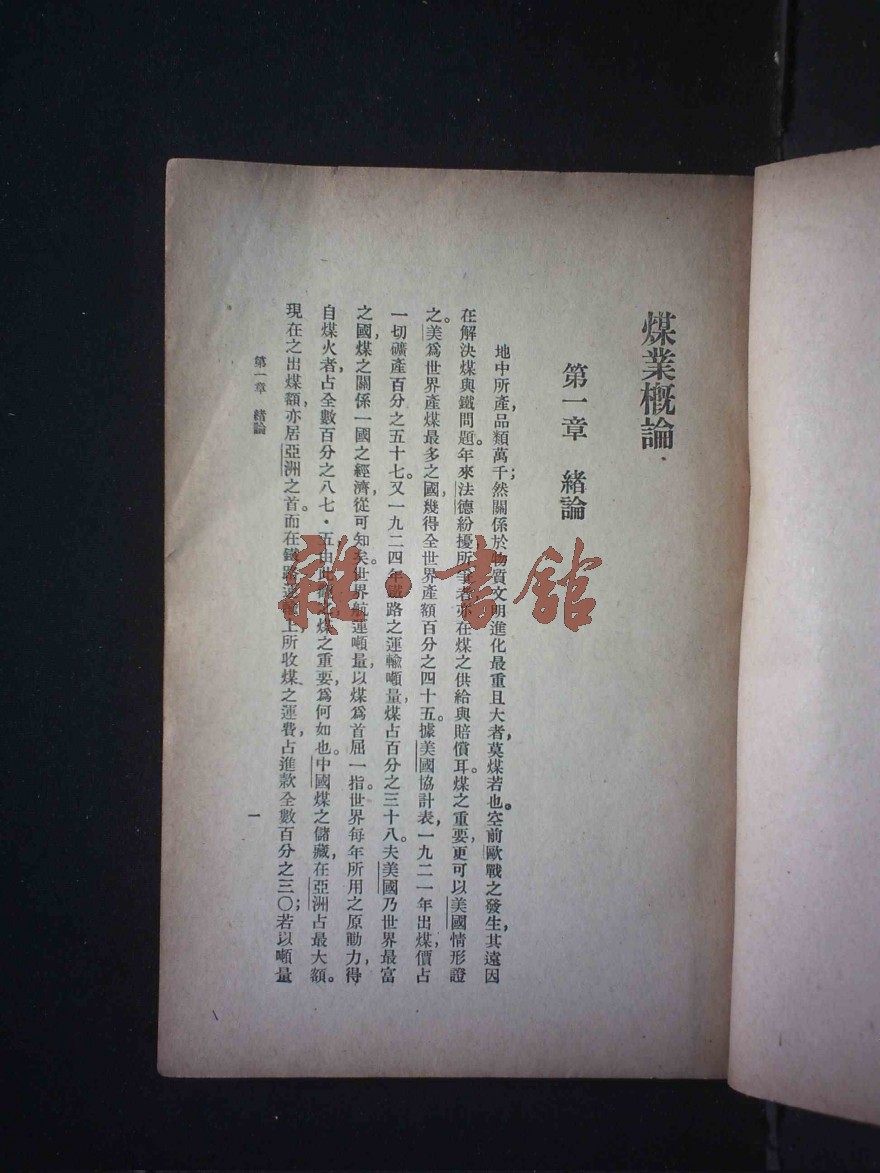 煤業概論
第一章　緒論
地中所產，品類萬千；然關係於物質文明進化最重且大者，莫煤若也。空前歐戰之發生，其遠因
在解決煤與鐵問題。年來法德紛擾所爭者，亦在煤之供給與賠償耳。煤之重要，更可以美國情形證
之。美爲世界產煤最多之國，幾得全世界產額百分之四十五。據美國協計表，一九二一年出煤，價占
一切礦產百分之五十七。又一九二四年鐵路之運輸噸量，煤占百分之三十八。夫美國乃世界最富
之國，煤之關係一國之經濟，從可知矣。世界航運噸量，以煤爲首屈一指。世界每年所用之原動力，得
自煤火者，占全數百分之八七・五，由此煤之重要，爲何如也。中國煤之儲藏，在亞洲占最大額。
現在之出煤額，亦居亞洲之首。而在鐵路運輸上，所收煤之運費，占進款全數百分之三〇；若以噸量
第一章　緒論
一
雜·書館